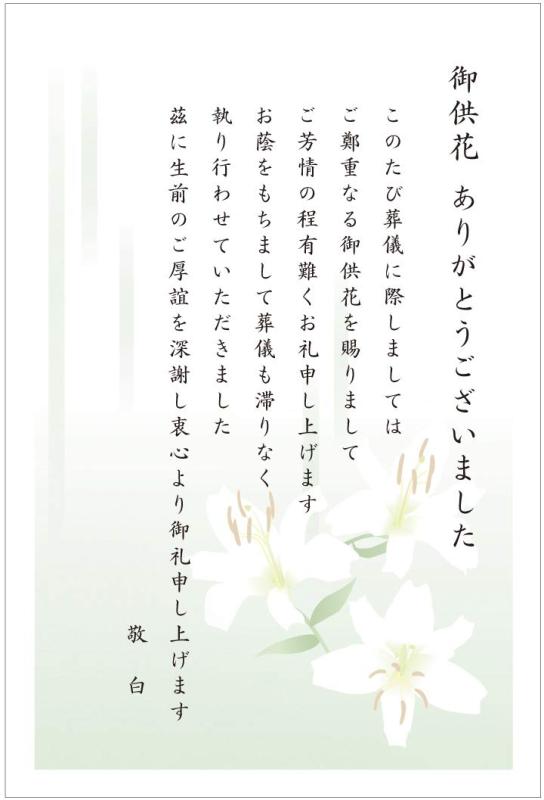 御供花 ありがとうございました
このたび葬儀に際しましては
ご鄭重なる御供花を賜りまして
ご芳情の程有難くお礼申し上げます
お蔭をもちまして葬儀も滞りなく
執り行わせていただきました
茲に生前のご厚誼を深謝し衷心より御礼申し上げます
敬白